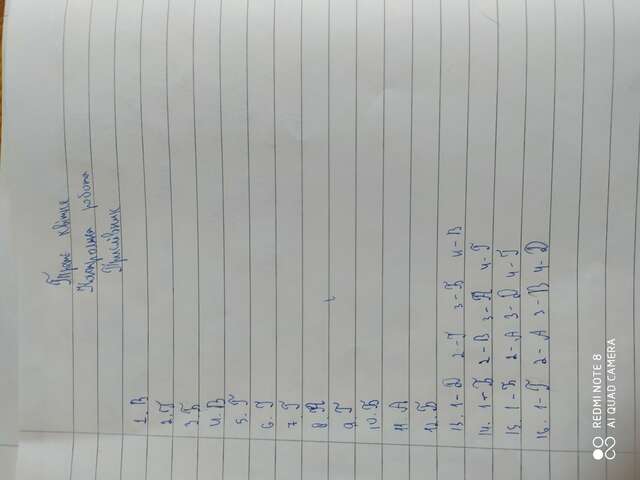 Третє квітня
Контрольна робота
Прислівник
1. В
2. Г
3. Б
4. В
5. Г
6. Г
7. Г
8. А
9. Г
10. Б
11. А
12. Б
13. 1-Д 2-Г 3-Б 4-В
14. 1-Б 2-В 3-А 4-Г
15. 1-Б 2-А 3-Д 4-Г
16. 1-Г 2-А 3-В 4-Д
REDMI NOTE 8
AI QUAD CAMERA